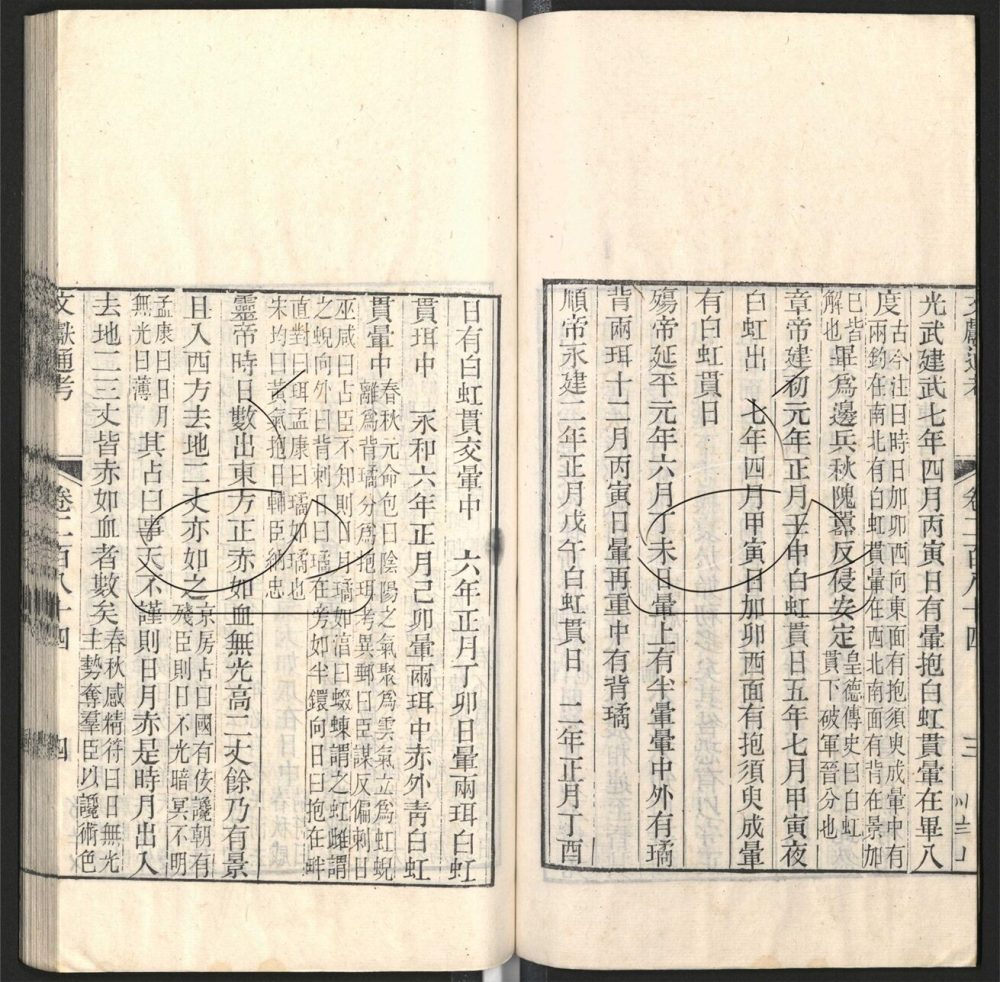 光武建武七年四月丙寅日有暈抱白虹貫暈在畢八
度古今注曰時日加卯西面向東面有抱須臾成暈中有
兩鉤在南北有白虹貫暈在西北南面有背在景加
巳皆解也畢爲邊兵秋隗囂反侵安定皇德傳史曰白虹貫下破軍晉分也
章帝建初元年正月壬申白虹貫日五年七月甲寅夜
白虹出　七年四月甲寅日加卯西面有抱須臾成暈
有白虹貫日
殤帝延平元年六月丁未日暈上有半暈暈中外有璚
背兩珥十二月丙寅日暈再重中有背璚
順帝永建二年正月戊午白虹貫日　二年正月丁酉
卷二百八十四
三
日有白虹貫交暈中　六年正月丁卯日暈兩珥白虹
貫珥中　永和六年正月己卯暈兩珥中赤外青白虹
貫暈中春秋元命包曰陰陽之氣聚爲雲氣立爲虹蜺
離爲背璚分爲抱珥考異郵曰臣謀反偏刺日
巫咸曰占臣不知則日月璚如淳曰蝃蝀謂之虹雌謂
之蜺向外曰背刺日曰璚在旁如半鐶向日曰抱在畔
直對曰珥孟康曰璚如璚也
宋均曰黃氣抱日輔臣納忠
靈帝時日數出東方正赤如血無光高二丈餘乃有景
且入西方去地二丈亦如之京房占曰國有佞讒朝有
殘臣則日不光暗冥不明
孟康曰日月
無光曰薄其占曰事天不謹則日月赤是時月出入
去地二三丈皆赤如血者數矣春秋感精符曰日無光
主勢奪羣臣以讒術色
文獻通考
卷二百八十四
四